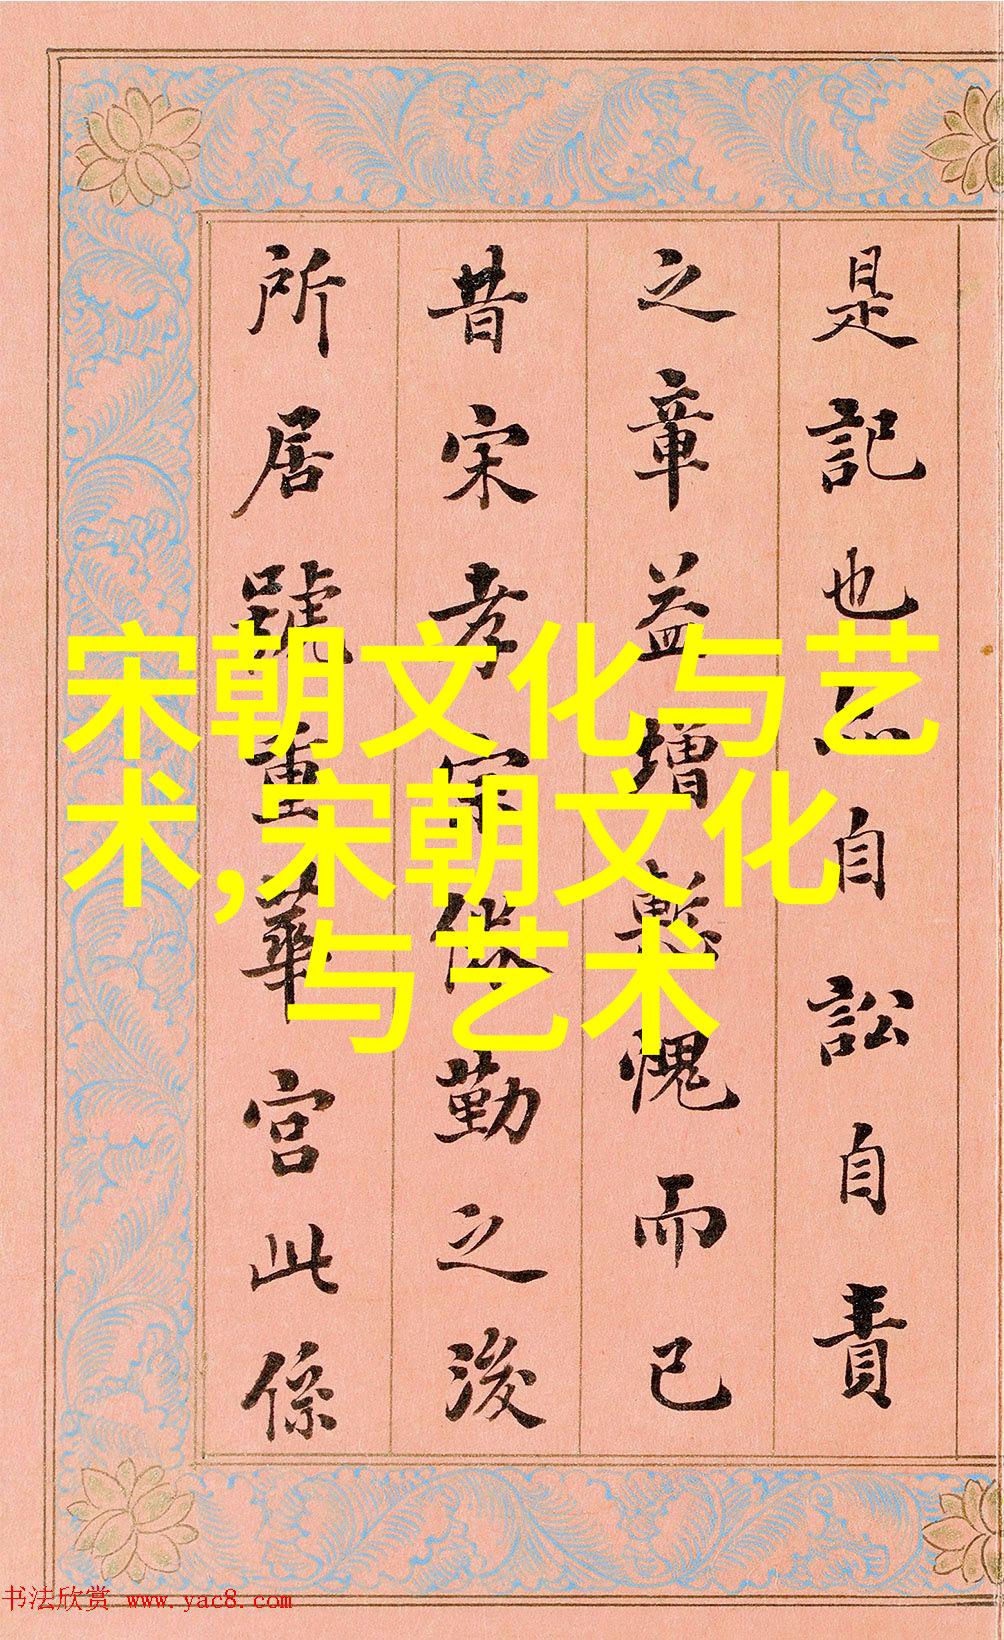 是記也自訟自責
之章益增慙愧而已
昔宋孝宗倦勤之後
所居號重華宮此係
宋朝文化与艺
术,宋朝文化
与艺术
书法欣赏 www.yac8.com